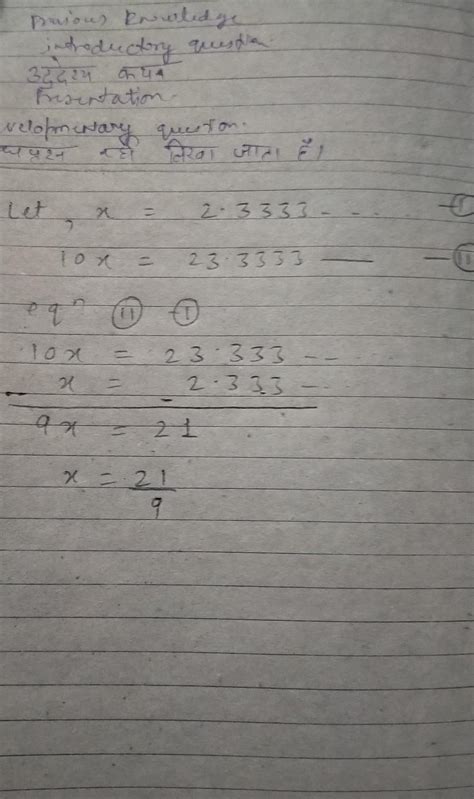 Previous knowledge
introductory question.
उद्देश्य कथन
Presentation.
velopmentary question.
प्रश्न नहीं लिखा जाता है।
Let, x = 2.3333-- ... —(I)
10x = 23.3333 —— —(II)
eqn (II) -(I)
10x = 23.333 -- ..
- x = - 2.333 -...
9x = 21
x = 21/9